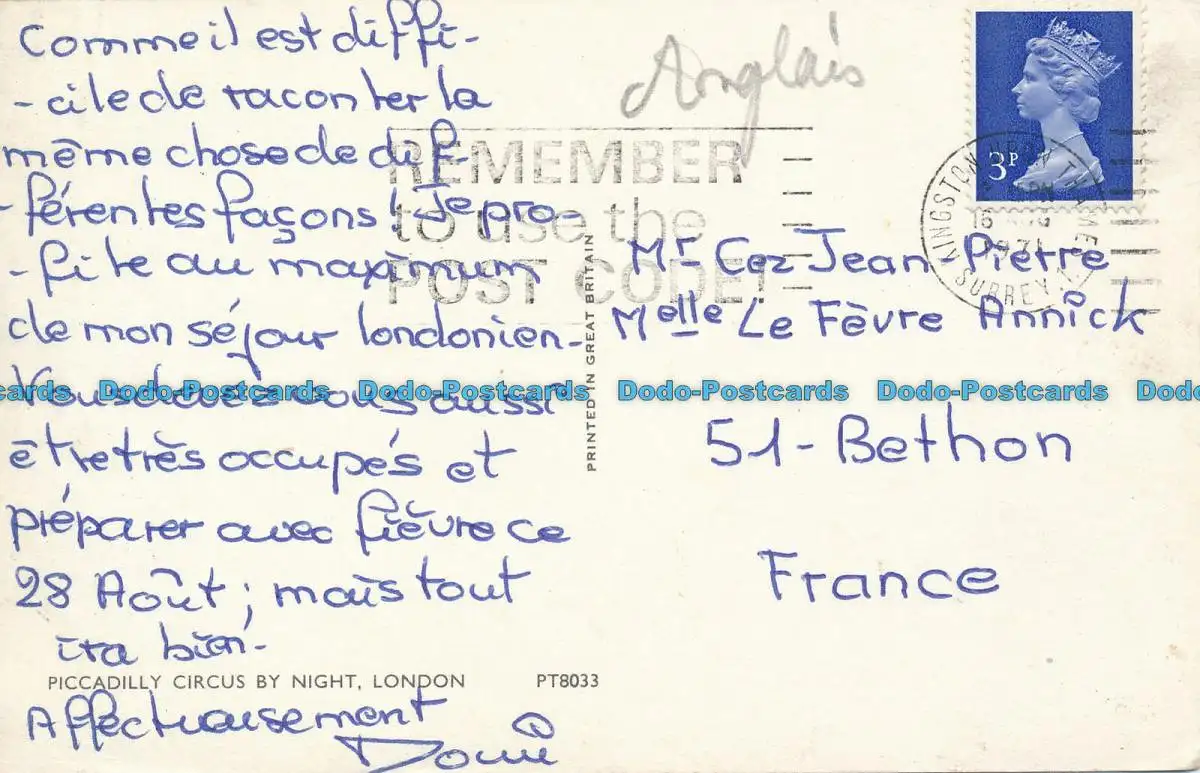 Comme il est diffi-
-cile de raconter la
même chose de dif-
-férentes façons ! Je pro-
-fite au maximum
de mon séjour londonien-
Vous devez vous aussi
être très occupés et
préparer avec fièvre ce
28 Août ; mais tout
ira bien.
PICCADILLY CIRCUS BY NIGHT, LONDON PT8033
Affectueusement
Anglais
REMEMBER
to use the
POST CODE!
3P
KINGSTON UPON THAMES
SURREY
PRINTED IN GREAT BRITAIN
Mr Cez Jean Pierre
Melle Le Fèvre Annick
51 - Bethon
France
Dodo-Postcards Dodo-Postcards Dodo-Postcards Dodo-Postcards Dodo